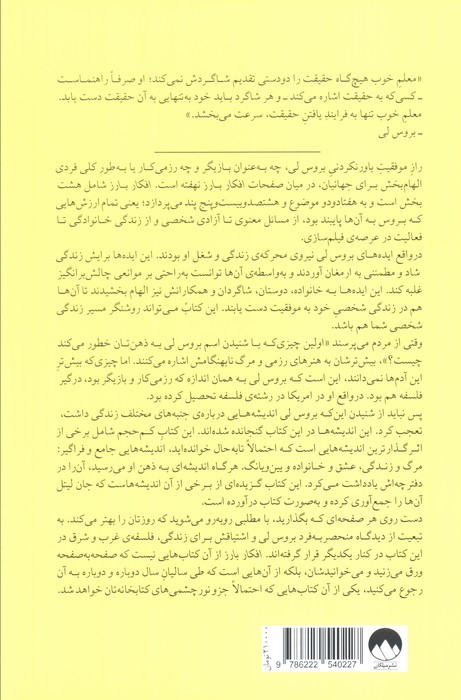 «معلمِ خوب هیچ‌گاه حقیقت را دودستی تقدیم شاگردش نمی‌کند؛ او صرفاً راهنماست
ـ کسی‌که به حقیقت اشاره می‌کند ـ و هر شاگرد باید خود به‌تنهایی به آن حقیقت دست یابد.
معلم خوب تنها به فرایندِ یافتنِ حقیقت، سرعت می‌بخشد.»
ـ بروس لی
رازِ موفقیتِ باورنکردنیِ بروس لی، چه به‌عنوان بازیگر و چه رزمی‌کار یا به‌طور کلی فردی
الهام‌بخش برای جهانیان، در میان صفحات افکار بارز نهفته است. افکار بارز شامل هشت
بخش است و به هفتادودو موضوع و هشتصدوبیست‌وپنج پند می‌پردازد؛ یعنی تمام ارزش‌هایی
که بروس به آن‌ها پایبند بود، از مسائل معنوی تا آزادی شخصی و از زندگی خانوادگی تا
فعالیت در عرصه‌ی فیلم‌سازی.
درواقع ایده‌های بروس لی نیروی محرکه‌ی زندگی و شغل او بودند. این ایده‌ها برایش زندگی
شاد و مطمئنی به ارمغان آوردند و به‌واسطه‌ی آن‌ها توانست به‌راحتی بر موانعی چالش‌برانگیز
غلبه کند. این ایده‌ها به خانواده، دوستان، شاگردان و همکارانش نیز الهام بخشیدند تا آن‌ها
هم در زندگی شخصیِ خود به موفقیت دست یابند. این کتاب می‌تواند روشنگر مسیر زندگی
شخصی شما هم باشد.
وقتی از مردم می‌پرسند «اولین چیزی‌که با شنیدن اسم بروس لی به ذهن‌تان خطور می‌کند
چیست؟»، بیش‌ترشان به هنرهای رزمی و مرگ نابهنگامش اشاره می‌کنند. اما چیزی‌که بیش‌ترِ
این آدم‌ها نمی‌دانند، این است که بروس لی به همان اندازه که رزمی‌کار و بازیگر بود، درگیر
فلسفه هم بود. درواقع او در امریکا در رشته‌ی فلسفه تحصیل کرده بود.
پس نباید از شنیدن این‌که بروس لی اندیشه‌هایی درباره‌ی جنبه‌های مختلف زندگی داشت،
تعجب کرد. این اندیشه‌ها در این کتاب گنجانده شده‌اند. این کتابِ کم‌حجم شامل برخی از
اثرگذارترین اندیشه‌هایی است که احتمالاً تابه‌حال خوانده‌اید، اندیشه‌هایی جامع و فراگیر:
مرگ و زندگی، عشق و خانواده و یین‌ویانگ. هرگاه اندیشه‌ای به ذهن او می‌رسید، آن‌را در
دفترچه‌اش یادداشت می‌کرد. این کتاب گزیده‌ای از برخی از آن اندیشه‌هاست که جان لیتل
آن‌ها را جمع‌آوری کرده و به‌صورت کتاب درآورده است.
دست روی هر صفحه‌ای که بگذارید، با مطلبی روبه‌رو می‌شوید که روزتان را بهتر می‌کند. به
تبعیت از دیدگاه منحصربه‌فرد بروس لی و اشتیاقش برای زندگی، فلسفه‌ی غرب و شرق در
این کتاب در کنار یکدیگر قرار گرفته‌اند. افکار بارز از آن کتاب‌هایی نیست که صفحه‌به‌صفحه
ورق می‌زنید و می‌خوانیدشان، بلکه از آن‌هایی است که طی سالیانِ سال دوباره و دوباره به آن
رجوع می‌کنید، یکی از آن کتاب‌هایی که احتمالاً جزو نورچشمی‌های کتابخانه‌تان خواهد شد.
۲۱۰۰۰۰ تومان
9 786222 540227
نشر میلکان